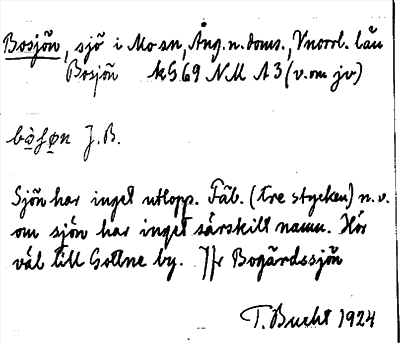 Bosjön, sjö i Mo sn, Ång. n. doms., Vnorrl. län
Bosjön kG 69 NM A3 (v. om jv)
bo̱ʃøn J.B.
Sjön har inget utlopp. Fäb. (tre stycken) n.v.
om sjön har inget särskilt namn. Hör
väl till Gottne by. Jfr Bogärdssjön
T. Bucht 1924